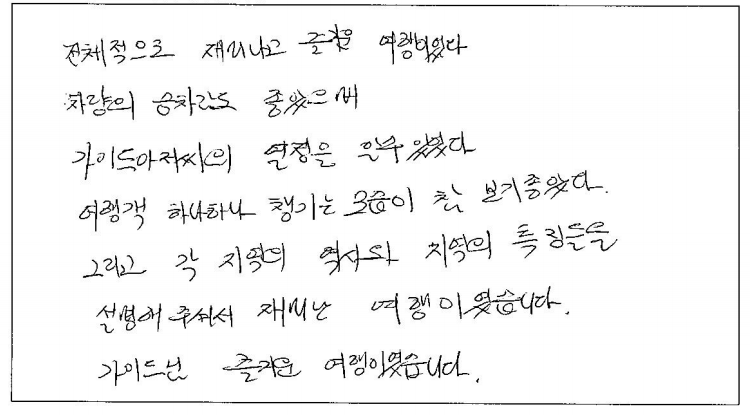 전체적으로 재미나고 즐거운 여행이었다
차량의 승차감도 좋았으며
가이드아저씨의 열정을 알수 있었다
여행객 하나하나 챙기는 모습이 참 보기좋았다.
그리고 각 지역의 역사와 지역의 특징들을
설명해주셔서 재미난 여행이였습니다.
가이드님 즐거운 여행이였습니다.